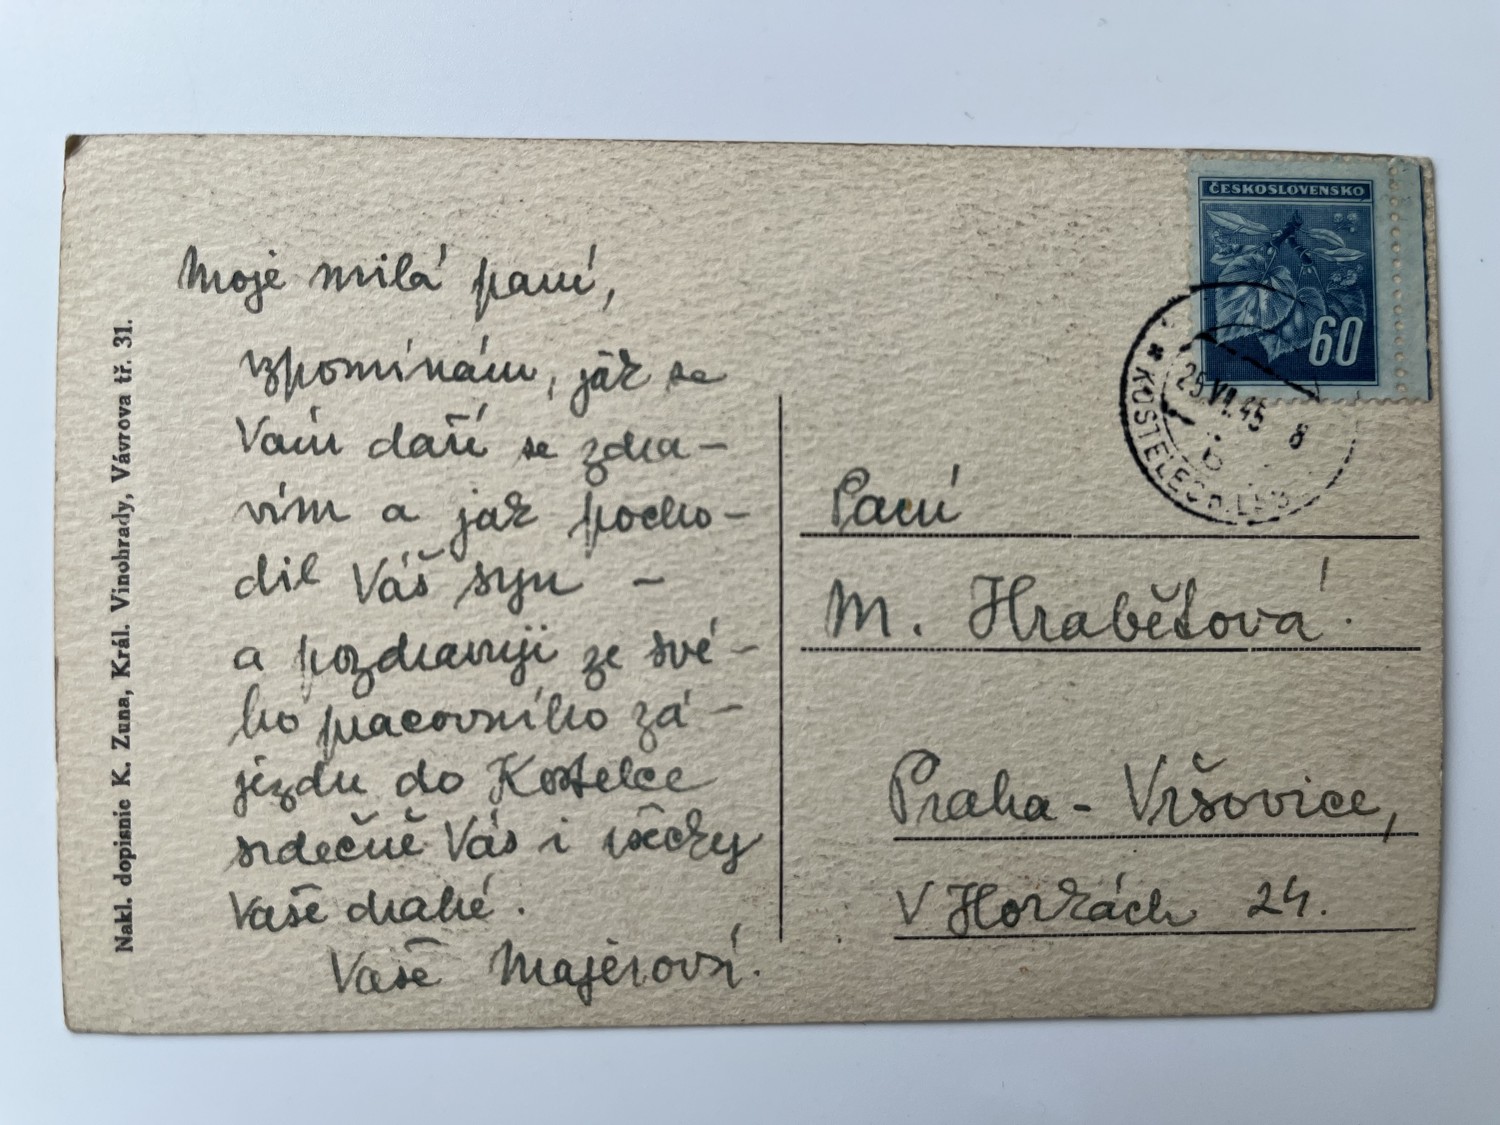 Moje milá paní,
vzpomínám, jak se
Vám daří se zdra-
vím a jak pocho-
dil Váš syn -
a pozdravuji ze své-
ho pracovního zá-
jezdu do Kostelce
srdečně Vás i všecky
Vaše drahé.
Vaše Majerová.
Nakl. dopisnic K. Zuna, Král. Vinohrady, Vávrova tř. 31.
ČESKOSLOVENSKO
60
KOSTELEC N.
25.VI.45 8
Paní
M. Hrabětová.
Praha - Vršovice,
V Horkách 24.